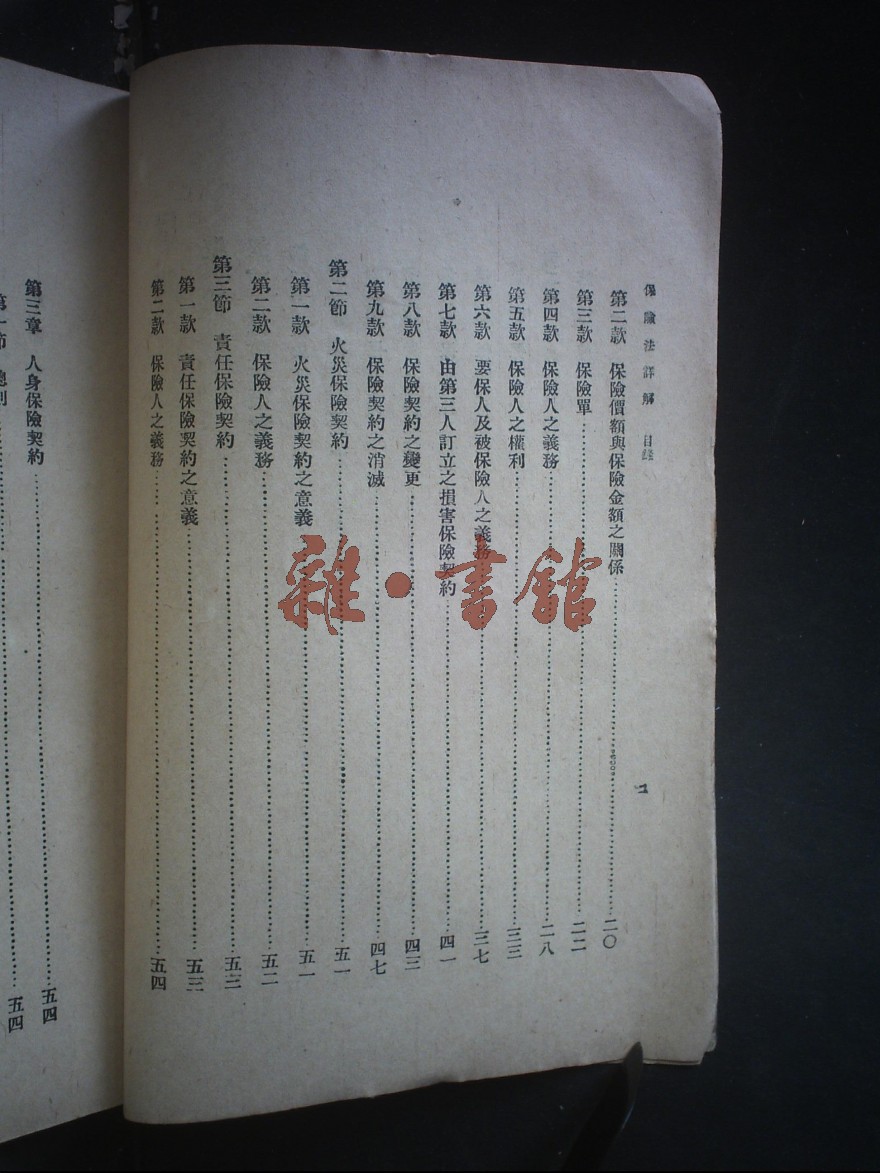 保險法詳解 目錄 二
第二款 保險價額與保險金額之關係……二〇
第三款 保險單……二二
第四款 保險人之義務……二八
第五款 保險人之權利……三三
第六款 要保人及被保險人之義務……三七
第七款 由第三人訂立之損害保險契約……四一
第八款 保險契約之變更……四三
第九款 保險契約之消滅……四七
第二節 火災保險契約……五一
第一款 火災保險契約之意義……五一
第二款 保險人之義務……五二
第三節 責任保險契約……五三
第一款 責任保險契約之意義……五三
第二款 保險人之義務……五四
第三章 人身保險契約……五四
第一節 總則……五四
雜·書館